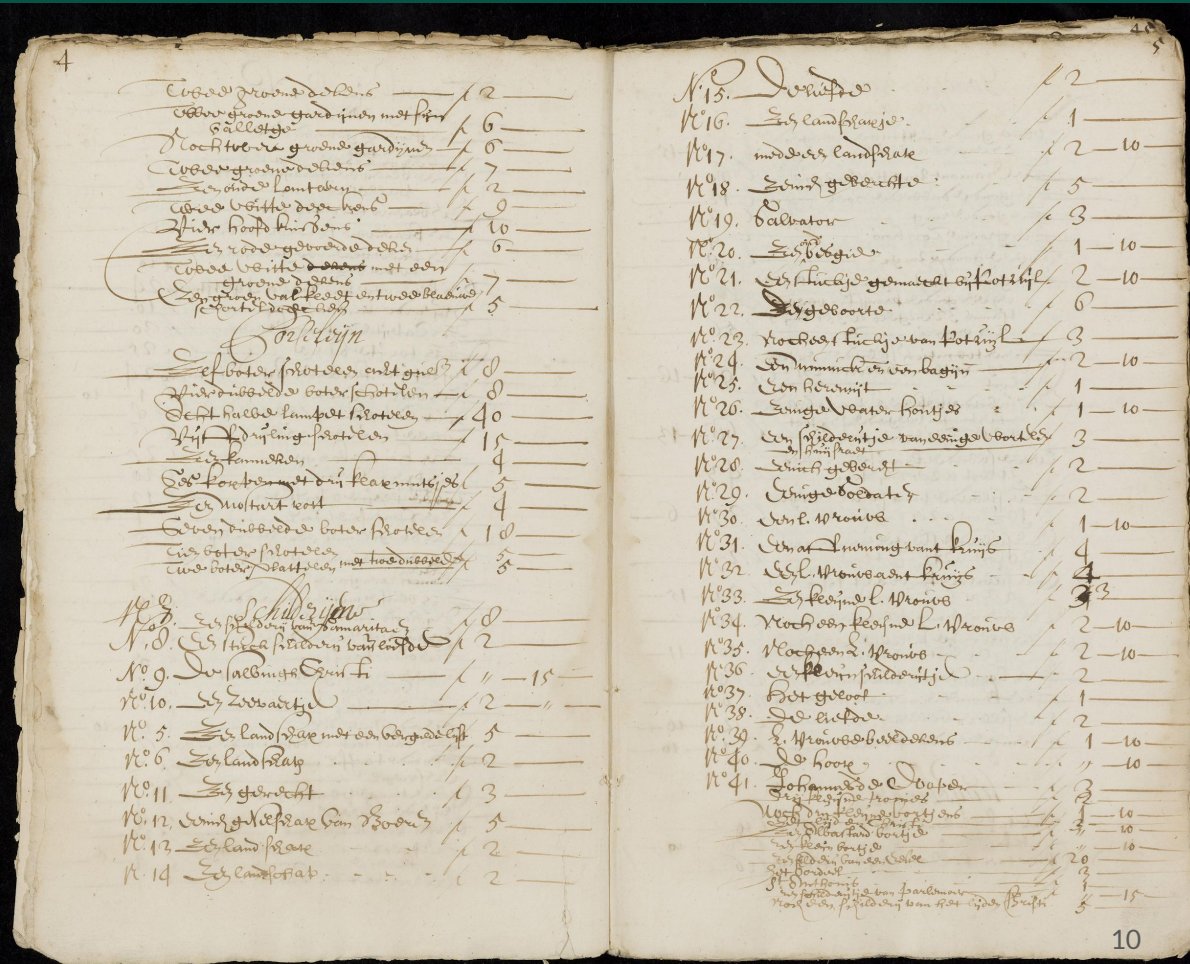 4
Twee groene dekens f 2
Twee groene gardijnen met sijn
valletge f 6
Noch twee groene gardijnen f 6
Twee groene dekens f 7
Een oude f 2
Twee witte dekens f 9
Vier hooft kussens f 10
Een rode gevoerde deken f 6
Twee witte dekens met een
groene dekens 7
Een groen valkleet en twee blaeuwe
5
Porseleijn
Elf boter schotelen f 8
Vier dubbelde boter schotelen f 8
Acht halve lampet schotelen f 40
Vijf drijling schotelen f 15
Een kanneken 4
Ses koppen met drij klapmutsjes f 5
Een mostart pott f 4
Seven dubbelde boter schotelen f 18
Tien boter schotelen 5
Twe boter plattelen met twe dubbelde f 5
Schilderijen
No 7. Een schilderij van Samaritaen f 8
No. 8. Een stuck schilderij van f 2
No 9. De salvingh Christi f " 15
No. 10. Een Zeevaertje f 2 "
No. 5. Een landschap met een f 5
No. 6. Een landschap f 2
No. 11. Een gerecht f 3
No. 12. Eenich geselschap van Boeren f 5
No. 13 Een landschap f 2
N. 14 Een landschap f 2
5
No. 15. De liefde f 2
No 16. Een landschapje f 1
No 17. mede een landschap f 2 10
No 18. Eenich geberchte f 5
No 19. Salvator f 3
No. 20. Een besgie f 1 10
No 21. Een stuckje gemaeckt bij Potuijl f 2 10
No 22. Een geboorte f 6
No. 23. Noch een stuckje van Potuijl f 3
No 24. Een munnick en een bagijn 2 10
No 25. Een heremijt 1
No 26. Eenige water hontjes f 1 10
No. 27. Een schilderijtje van eenige wortelen 3
en huijsraet
No 28. Eenich geberght f 2
No 29. Eenige Soldaten f 2
No 30. Een L. Vrouw f 1 10
No 31. Een afneming vant kruijs f 4
No 32. Een L. Vrouw aent kruijs f 4
No 33. Een kleijne L. Vrouw f 3
No 34. Noch een kleijne L. Vrouw f 2 10
No 35. Noch een L. Vrouw f 2 10
No 36 Een kleijn schilderijtje f 2
No 37. Het geloof f 1
No 38. De liefde f 2
No. 39. L. Vrouwe beeldekens f 1 10
No 40. De hoop f " 10
No 41. Johannes de Dooper f 3
Drij kleijne
Noch drij kleijne bortjens 1 10
" 10
Een kleijn bortje " 10
Een schilderij van een 20
3
St Anthonis 1
Een schilderijtje van parlemoer f " 15
Noch een schilderij van het lijden Christi f 5
10